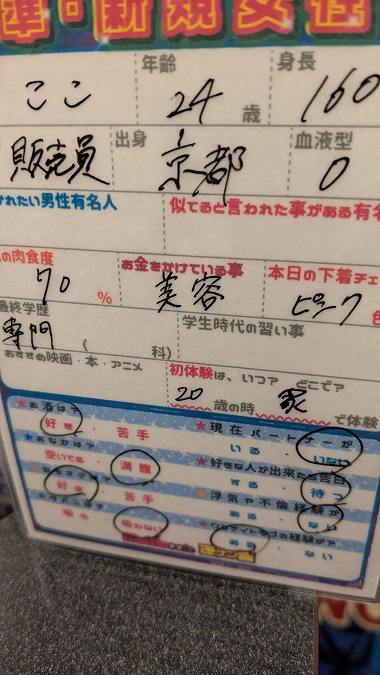 準・新規女性
ここ 年齢 24 歳 身長 160
販売員 出身 京都 血液型 O
れたい男性有名人 似てると言われた事がある有名
の肉食度 70 % お金をかけている事 美容 本日の下着チェ ピンク 色
最終学歴 専門 ( 科) 学生時代の習い事
おすすめ映画・本・アニメ 初体験は、いつ? どこで?
20 歳の時 家 で体験
★お酒は? ★現在パートナーが
好き・苦手 いる・いない
★おなかは? ★好きな人が出来たら告白
空いてる 満腹 する 待つ
★浮気や不倫経験が
好き・苦手 ある ない
吸う 吸わない ワンナイトラブの経験が?
ある ない